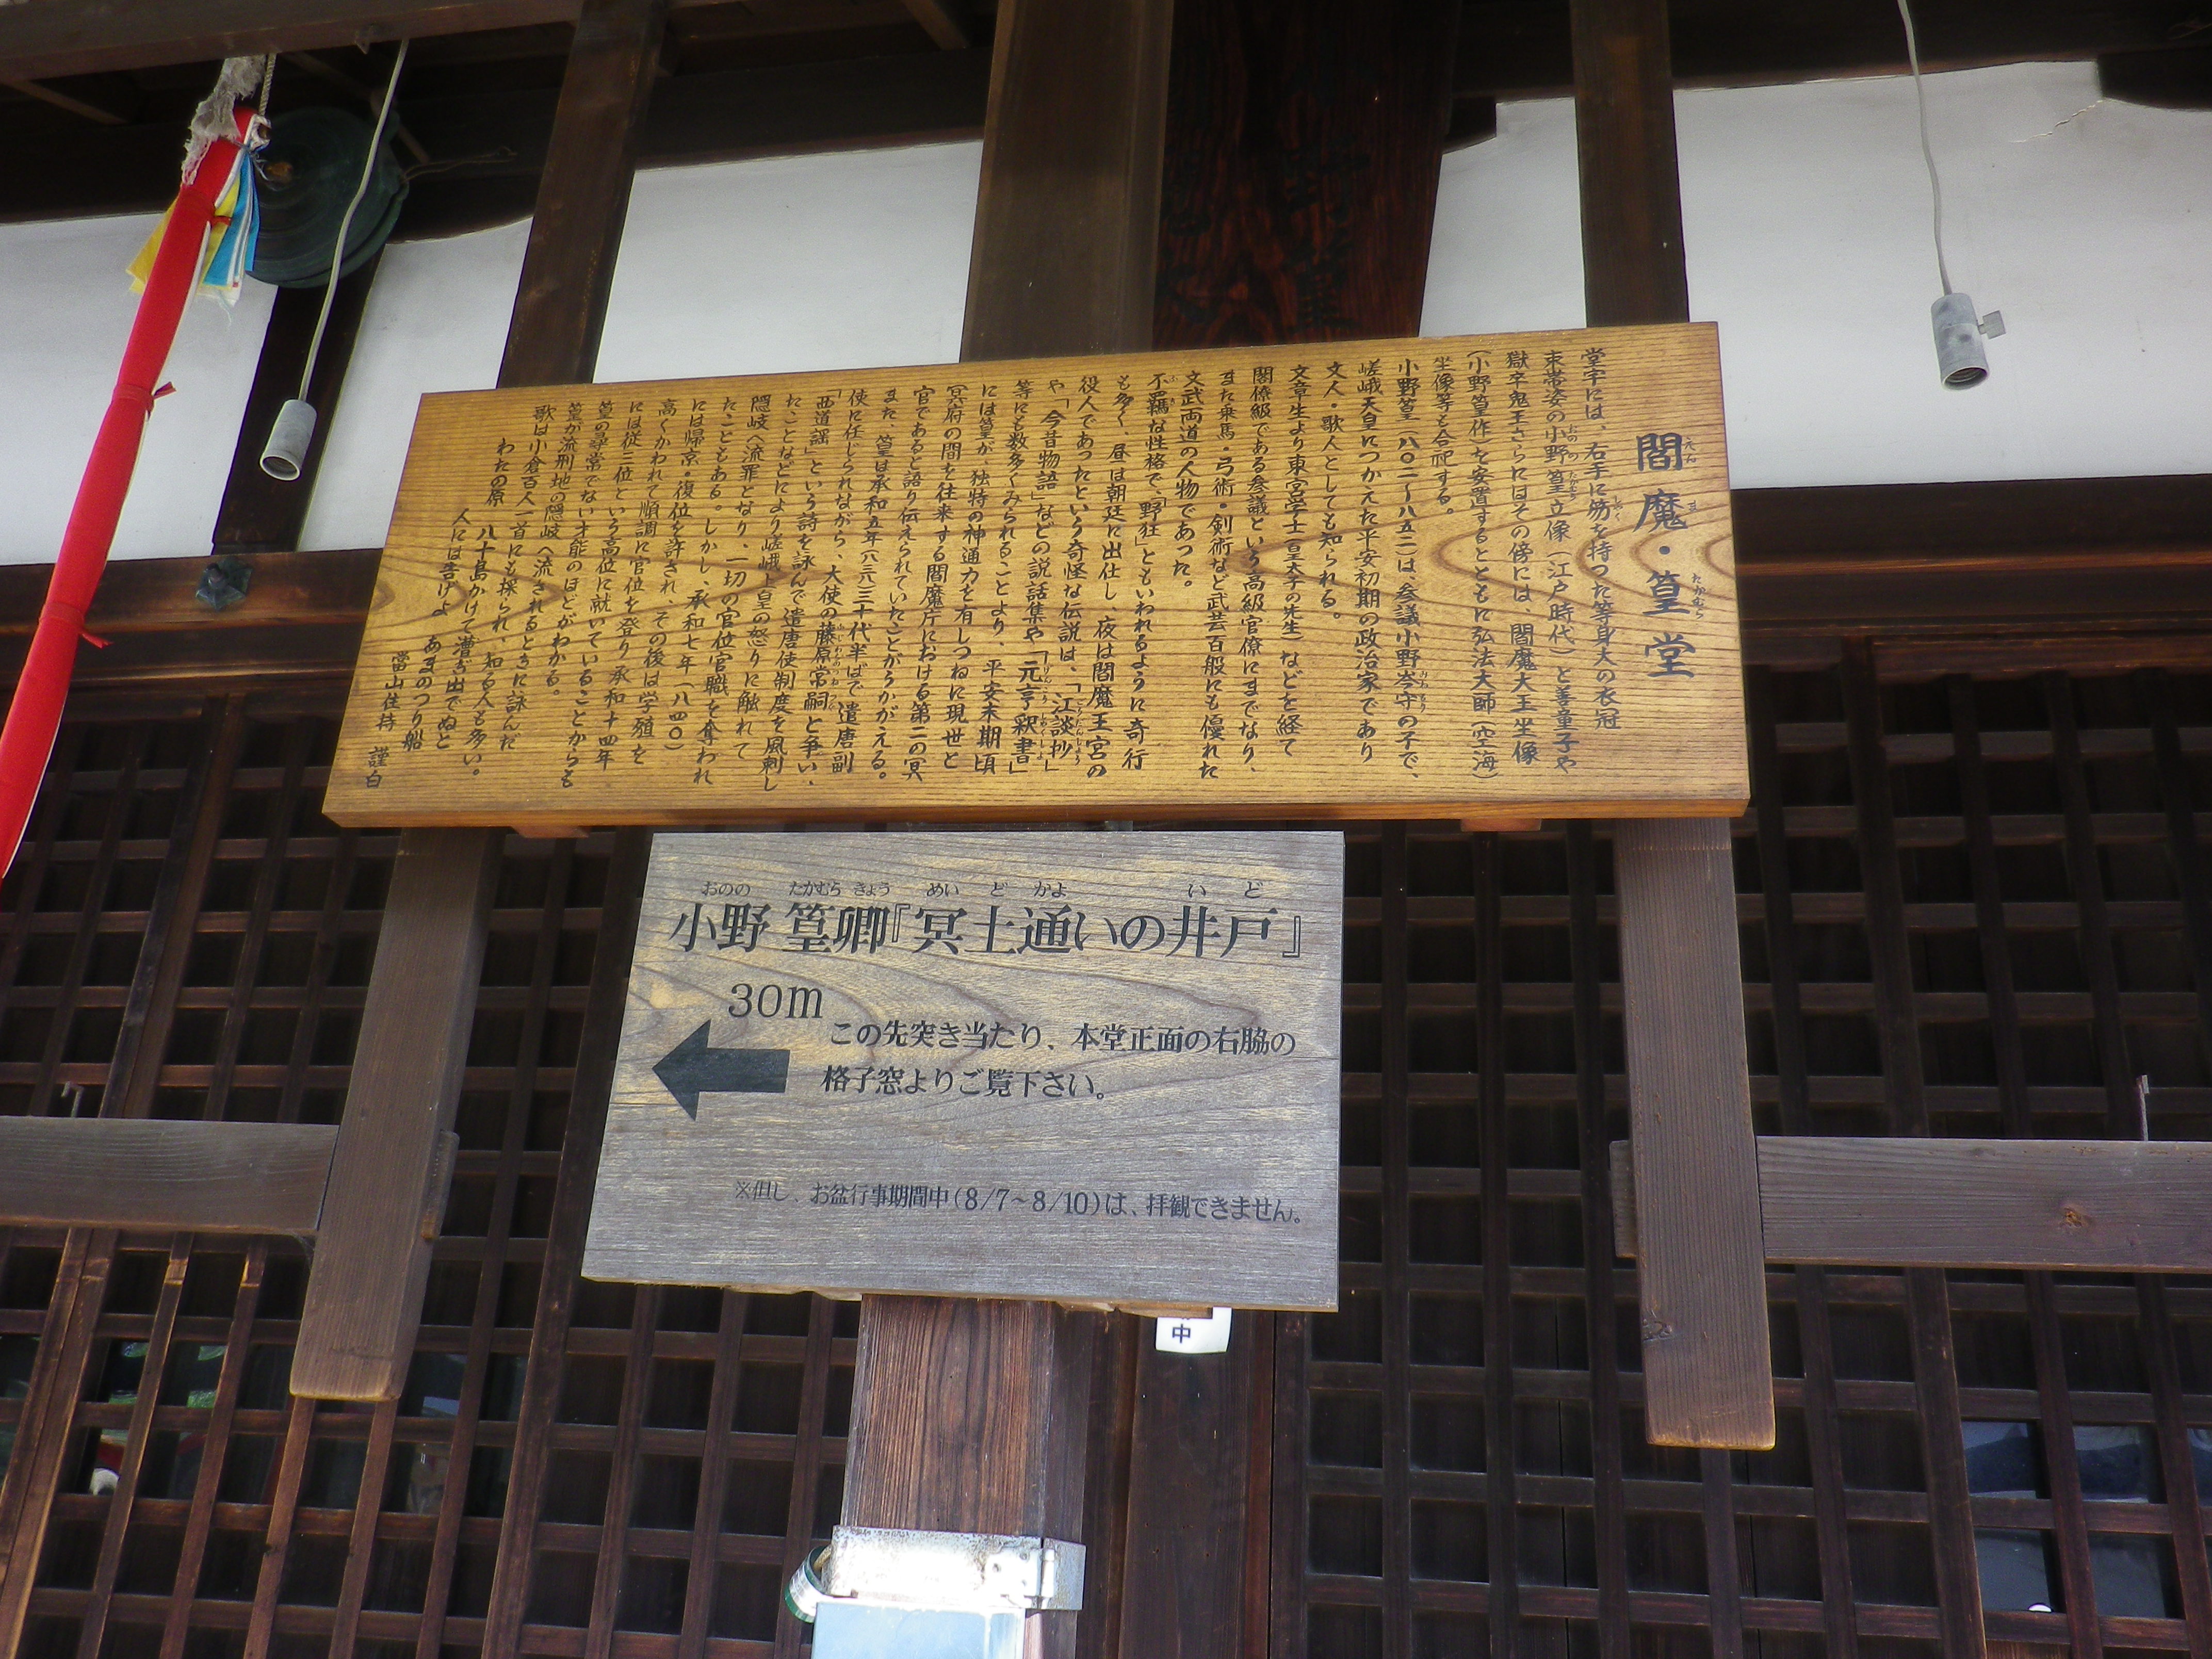 閻魔・篁堂
えん ま たかむら
堂宇には、右手に笏を持った等身大の衣冠
しゃく
束帯姿の小野篁立像（江戸時代）と善童子や
おのの たかむら
獄卒鬼王さらにはその傍には、閻魔大王坐像
（小野篁作）を安置するとともに弘法大師（空海）
坐像等も合祀する。
小野篁（八〇二～八五二）は、参議小野岑守の子で、
嵯峨天皇につかえた平安初期の政治家であり
文人・歌人としても知られる。
文章生より東宮学士（皇太子の先生）などを経て
閣僚級である参議という高級官僚にまでなり、
また乗馬・弓術・剣術など武芸百般にも優れた
文武両道の人物であった。
不羈な性格で、「野狂」ともいわれるように奇行
ふ き
も多く、昼は朝廷に出仕し、夜は閻魔王宮の
役人であったという奇怪な伝説は、「江談抄」
や「今昔物語」などの説話集や「元亨釈書」
等にも数多くみられることより、平安末期頃
には篁が、独特の神通力を有しつねに現世と
冥府の間を往来する閻魔庁における第二の冥
官であると語り伝えられていたことがうかがえる。
また、篁は承和五年（八三八）三十代半ばで遣唐副
使に任じられながら、大使の藤原常嗣と争い、
「西道謡」という詩を詠んで遣唐使制度を風刺し
たことなどにより嵯峨上皇の怒りに触れて
隠岐へ流罪となり、一切の官位官職を奪われ
たこともある。しかし、承和七年（八四〇）
には帰京・復位を許され、その後は学殖を
高くかわれて順調に官位を登り承和十四年
には従三位という高位に就いていることからも
篁の尋常でない才能のほどがわかる。
篁が流刑地の隠岐へ流されるときに詠んだ
歌は小倉百人一首にも採られ、知る人も多い。
わたの原 八十島かけて漕ぎ出でぬと
人には告げよ あまのつり船
當山住持 謹白
おのの たかむら きょう めい ど かよ い ど
小野 篁卿『冥土通いの井戸』
30m
この先突き当たり、本堂正面の右脇の
格子窓よりご覧下さい。
※但し、お盆行事期間中(8/7～8/10)は、拝観できません。
中